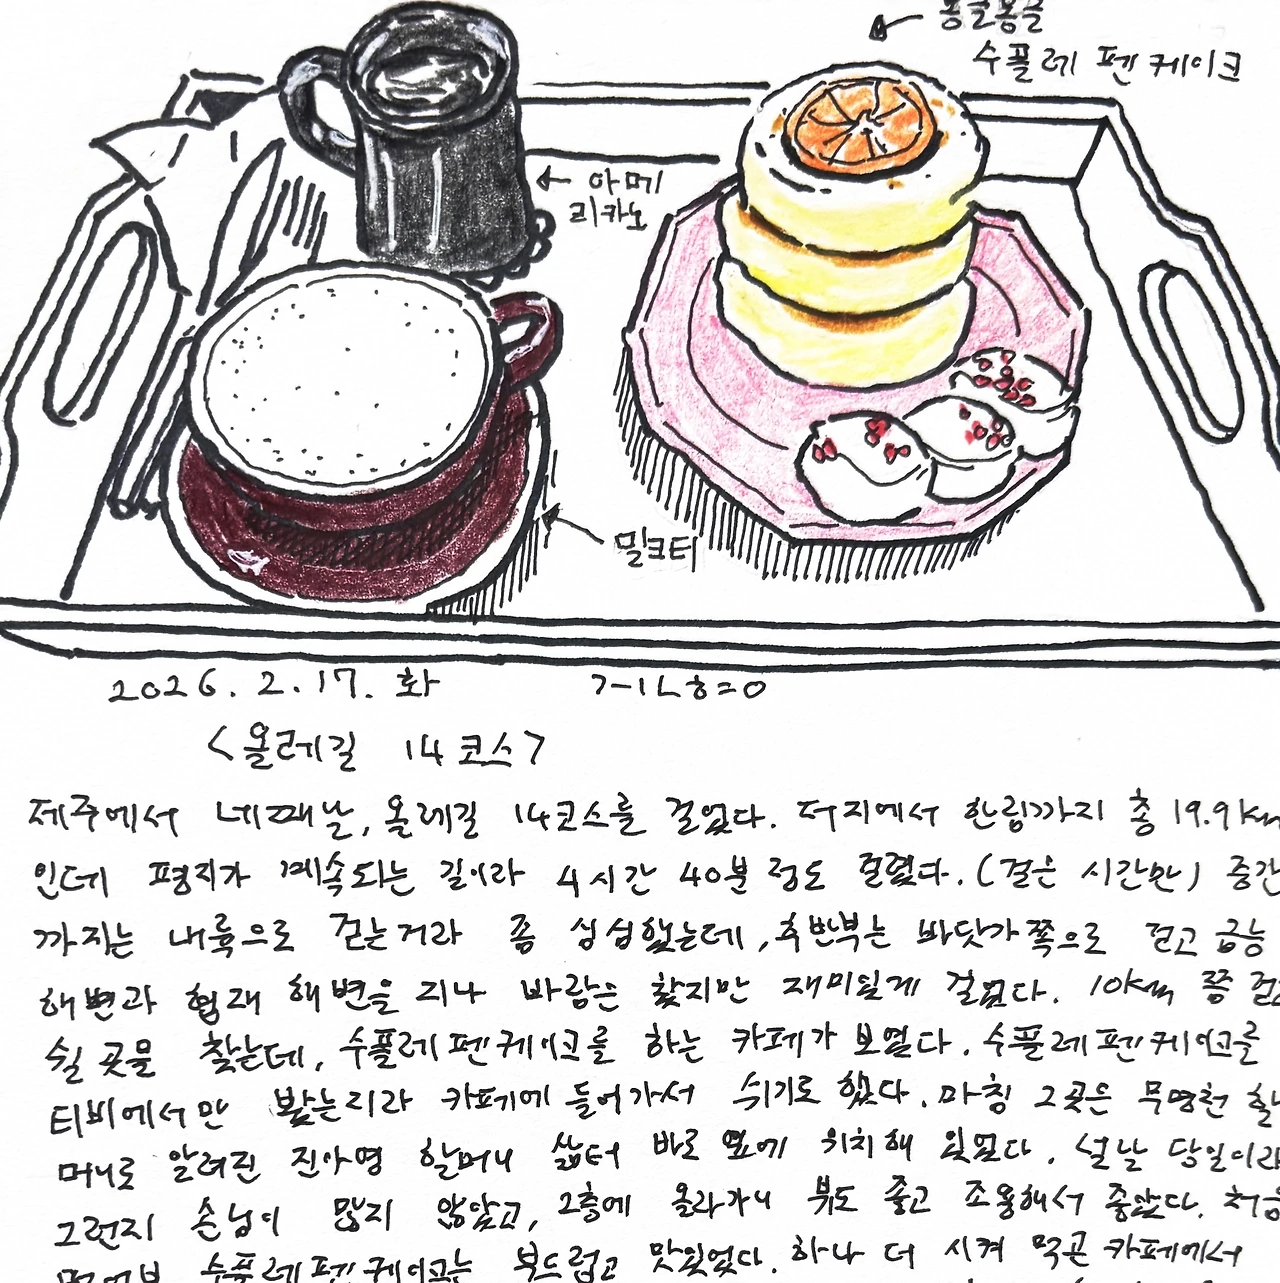 몽글몽글
수플레 펜케이크
← 아메
리카노
밀크티
2026. 2. 17. 화
ㄱㅡㅣㄴㅎ=0
<올레길 14코스>
제주에서 네째날, 올레길 14코스를 걸었다. 저지에서 한림까지 총 19.9km
인데 평지가 계속되는 길이라 4시간 40분 정도 걸렸다. (걸은 시간만) 중간
까지는 내륙으로 걷는거라 좀 심심했는데, 후반부는 바닷가쪽으로 걷고 금능
해변과 협재 해변을 지나 바람은 찾지만 재미있게 걸었다. 10km 쯤 걷고
쉴 곳을 찾는데, 수플레펜케이크를 하는 카페가 보였다. 수플레펜케이크를
티비에서만 봤는지라 카페에 들어가서 쉬기로 했다. 마침 그곳은 무명천 할
머니로 알려진 진아영 할머니 삶터 바로 옆에 위치해 있었다. 설날 당일이라
그런지 손님이 많지 않았고, 2층에 올라가니 뷰도 좋고 조용해서 좋았다. 처음
먹어본 수플레펜케이크는 부드럽고 맛있었다. 하나 더 시켜 먹곤 카페에서